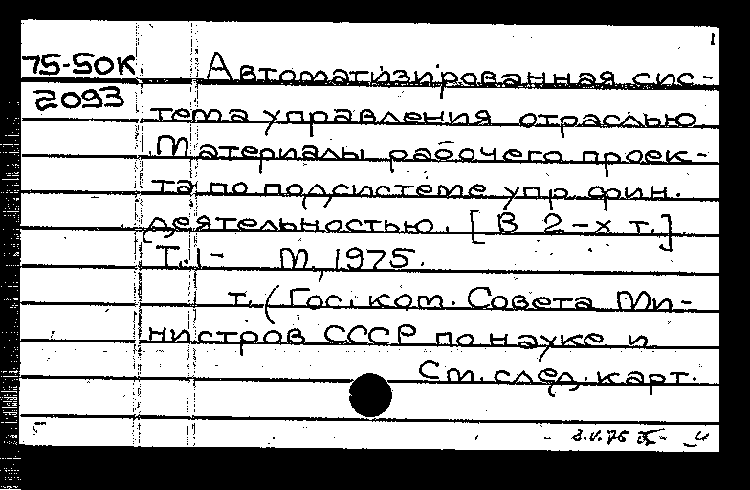 1
75-50К Автоматизированная сис-
2093 тема управления отраслью.
Материалы рабочего проек-
та по подсистеме упр. фин.
деятельностью. [В 2-х т.]
Т.1- М., 1975.
т. (Гос. ком. Совета Ми-
нистров СССР по науке и
См. след. карт.